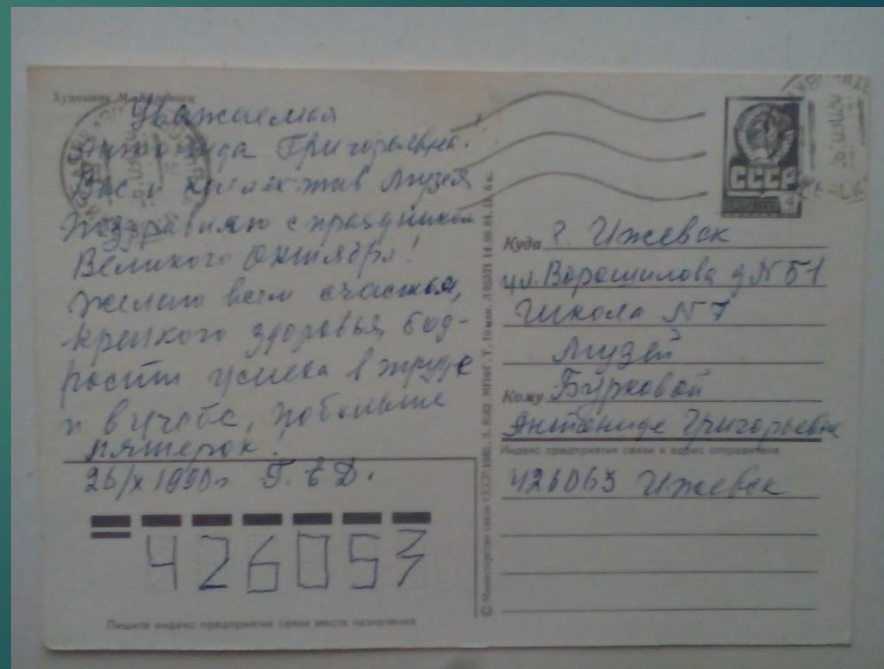 Художник М.
Уважаемая
Антонида Григорьевна.
Вас и коллектив Музея
поздравляю с праздником
Великого Октября!
Желаю всем счастья,
крепкого здоровья, бод-
рости успеха в труде
и в учебе, побольше
пятерок!
26/X 1990г Г. Е Д.
426053
Пишите индекс предприятия связи места назначения
© Министерство связи СССР
СССР
4
Куда г. Ижевск
ул. Ворошилова д N 51
Школа N 7
Музей
Кому Бурковой
Антониде Григорьевне
Индекс предприятия связи и адрес отправителя
426063 Ижевск